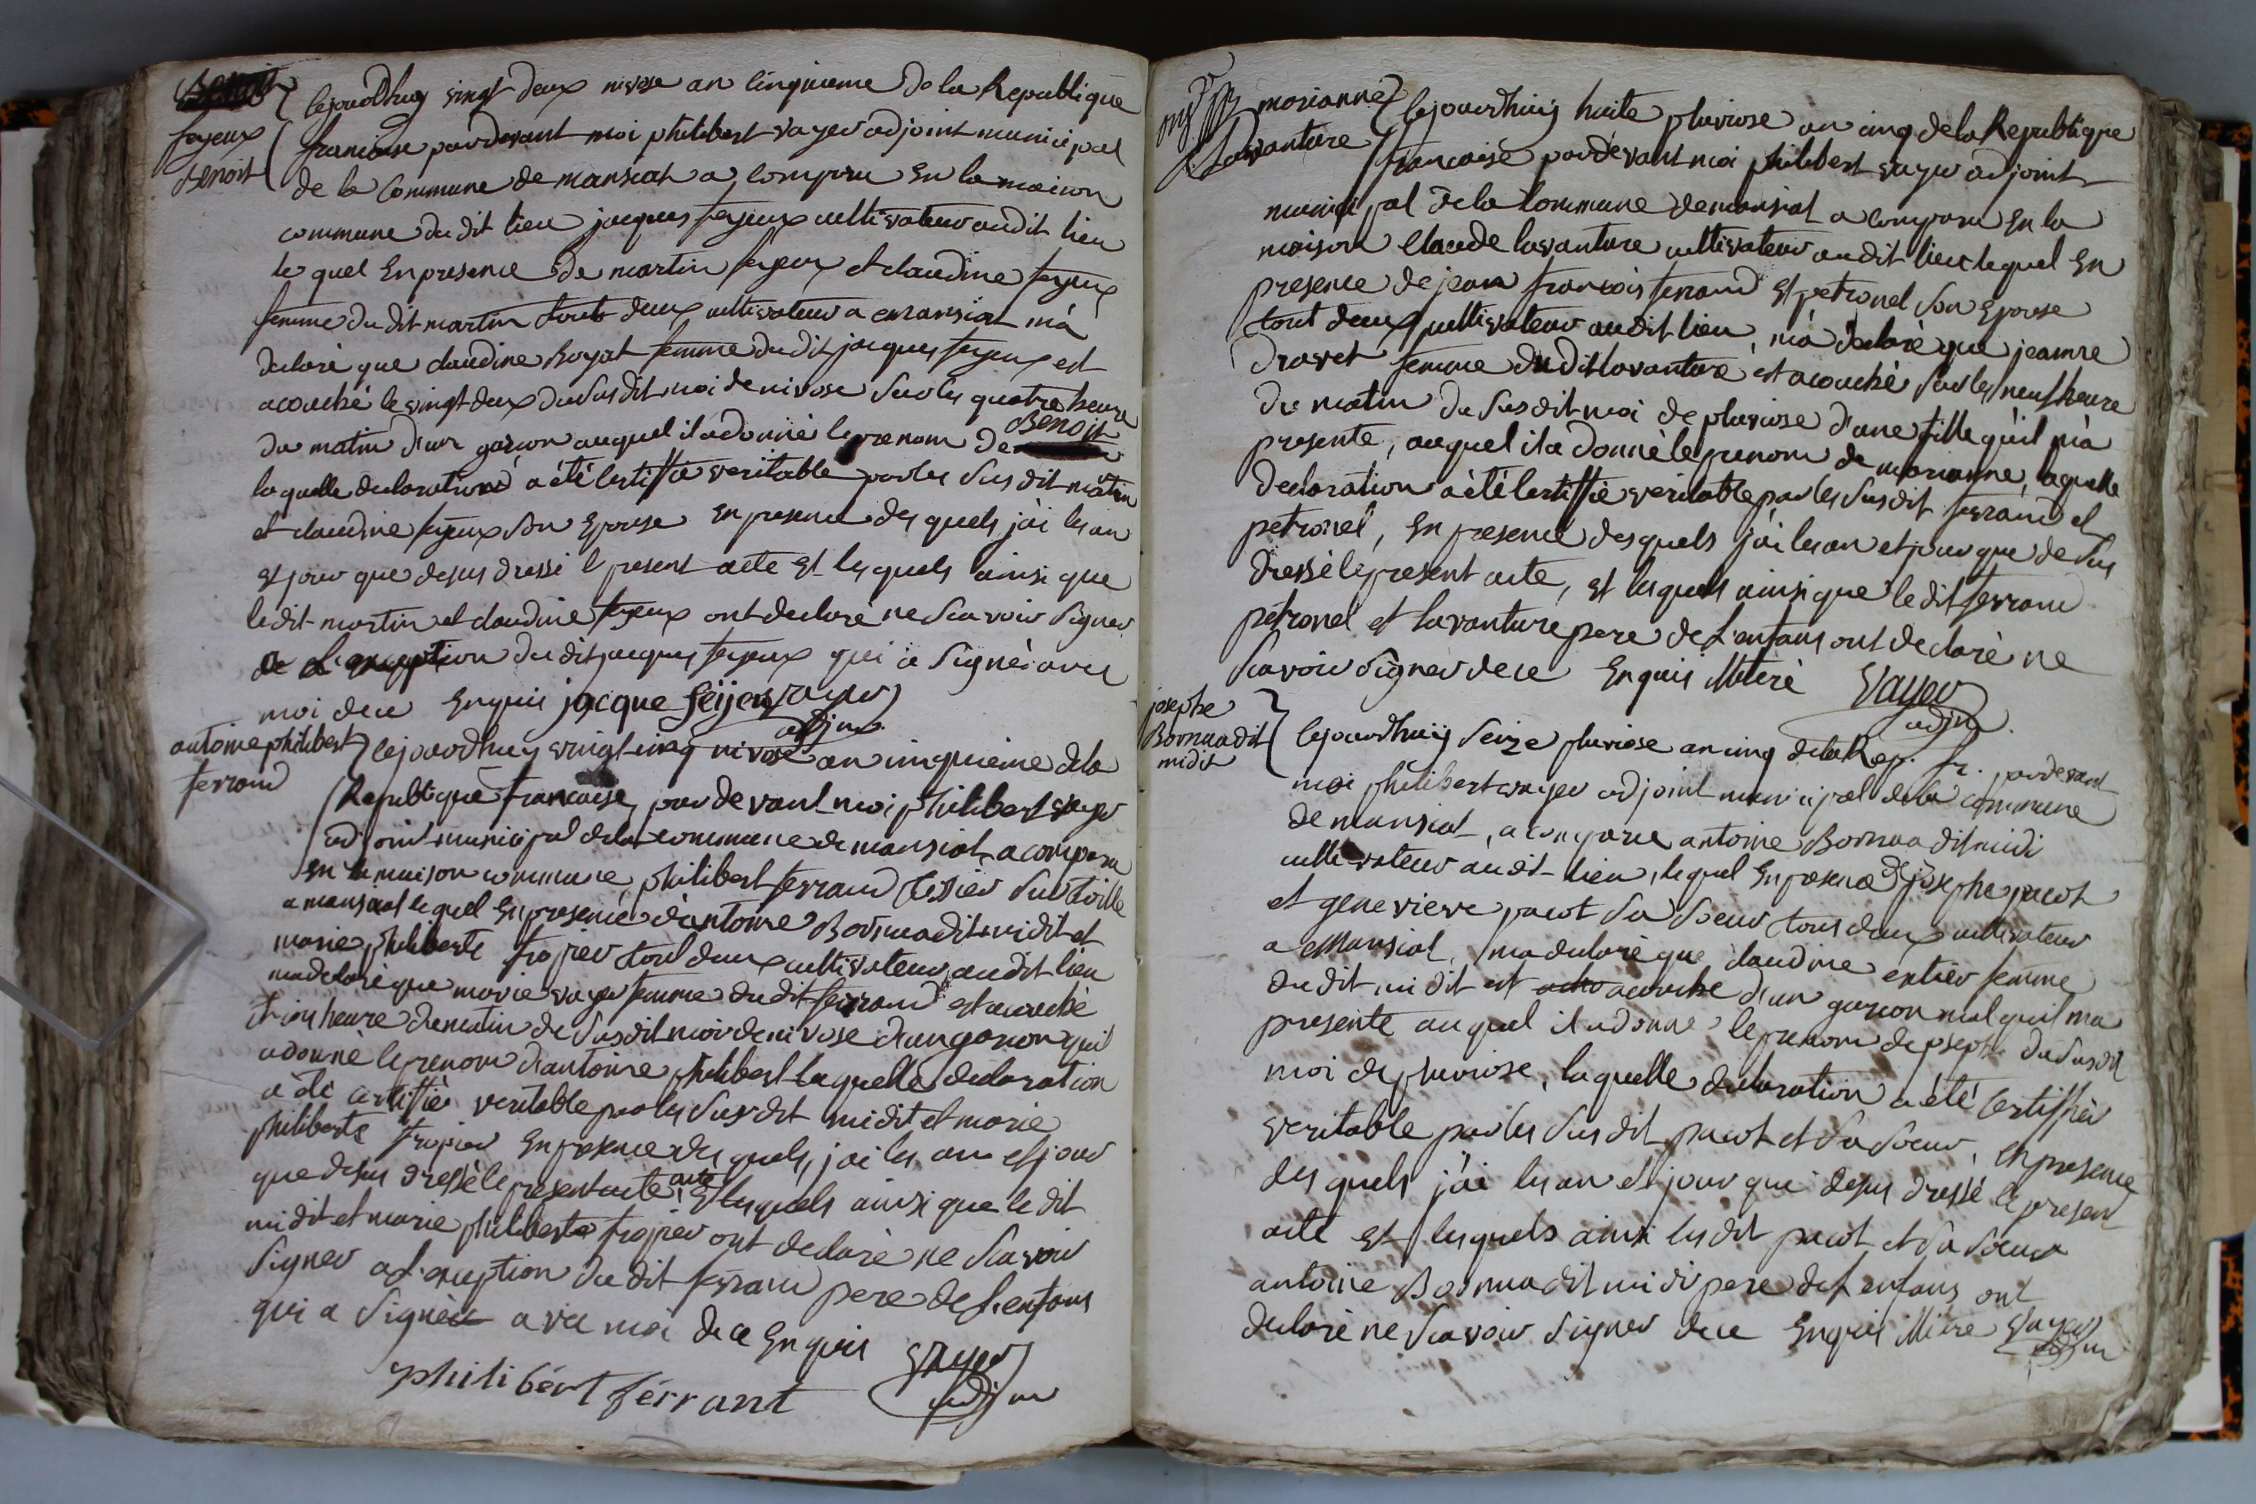 feyeux
Benoit
cejourdhuy vingt deux nivose an cinquieme de la Republique
francaise pardevant moi philibert vayer adjoint municipal
de la Commune de mansiat a comparu En la maison
commune du dit lieu jacques feyeux cultivateur audit lieu
le quel En presence de martin feyeux et claudine feyeux
femme du dit martin touts deux cultivateur a mansiat m'a
declaré que claudine Boyat femme du dit jacques feyeux est
acouché le vingt deux du susdit moi de nivose sur les quatre heure
du matin d'un garcon auquel il a donné le prenom de Benoit
la quelle declaration a été certiffié veritable par les sus dit martin
et claudine feyeux son Epouse En presence des quels j'ai les an
et jour que desus dressé le present acte Et les quels ainsi que
le dit martin et claudine feyeux ont declaré ne scavoir signer
a L'exception du dit jacques feyeux qui a signé avec
moi de ce Enquis jacque feijeux vayer
adjm
antoine philibert
ferrand
cejourdhuy vingt cinq nivose an cinquieme dela
Republique francaise, par devant moi philibert vayer
adjoint municipal dela commune de mansiat a comparu
En la maison commune philibert ferrand tissier sur toille
a mansiat le quel En presence d'antoine Bornua dit midit et
marie philiberte fropier tout deux cultivateur au dit lieu
ma declaré que marie vayer femme du dit ferrand est acouché
heure du matin de susdit moi de nivose d'un garcon qu'il
a donné le prenom d'antoine philibert la quelle declaration
a été certiffié veritable par les susdit midit et marie
philiberte fropier En presence des quels, j'ai les an et jour
que desus dressé le present acte, Et les quels ainsi que le dit
midit et marie philiberte fropier ont declaré ne scavoir
signer a L'exception du dit ferrand pere de L'enfans
qui a signé avec moi de ce Enquis vayer
philibért férrant adjm
marianne
Lavanture
cejourdhuy huite pluviose an cinq de la Republique
francaise pardevant moi philibert vayer adjoint
municipal de la Commune de mansiat a comparu En la
maison Claude lavanture cultivateur au dit lieu lequel En
presence de jean francois ferrand Et petronel son Epouse
tout deux cultivateur au dit lieu, m'a declaré que jeanne
Dravet femme du dit lavanture est acouché sur les neuf heure
du matin du susdit moi de pluviose d'une fille qu'il m'a
presente, auquel il a donné le prenom de marianne, laquelle
declaration a été certiffié veritable par les susdit ferrand et
petronel, En presence desquels j'ai les an et jour que de sus
dressé le present acte, Et lesquels ainsi que le dit ferrand
petronel et lavanture pere de L'enfans ont declaré ne
scavoir signer de ce Enquis Vayer
adjm
josephe
Bornua dit
midit
cejourdhuy seize pluviose an cinq dela Rep. fr. par devant
moi philibert vayer adjoint municipal dela commune
de mansiat, a comparu antoine Bornua dit midi
cultivateur au dit lieu, lequel En presence de josephe pacot
et genevieve pacot sa soeur tous deux cultivateur
a Mansiat, ma declaré que claudine entier femme
du dit midit est acouché d'un garcon mal qu'il ma
presente au quel il a donné le prenom de joseph du susdit
moi de pluviose, la quelle declaration a été Certiffiér
veritable par les susdit pacot et sa soeur, En presence
des quels j'ai les an et jour que desus dressé le present
acte Et lesquels ainsi lesdit pacot et sa soeur
antoine Bornua dit midi pere de L'enfans ont
declaré ne scavoir signer de ce Enquis Vayer
adjm